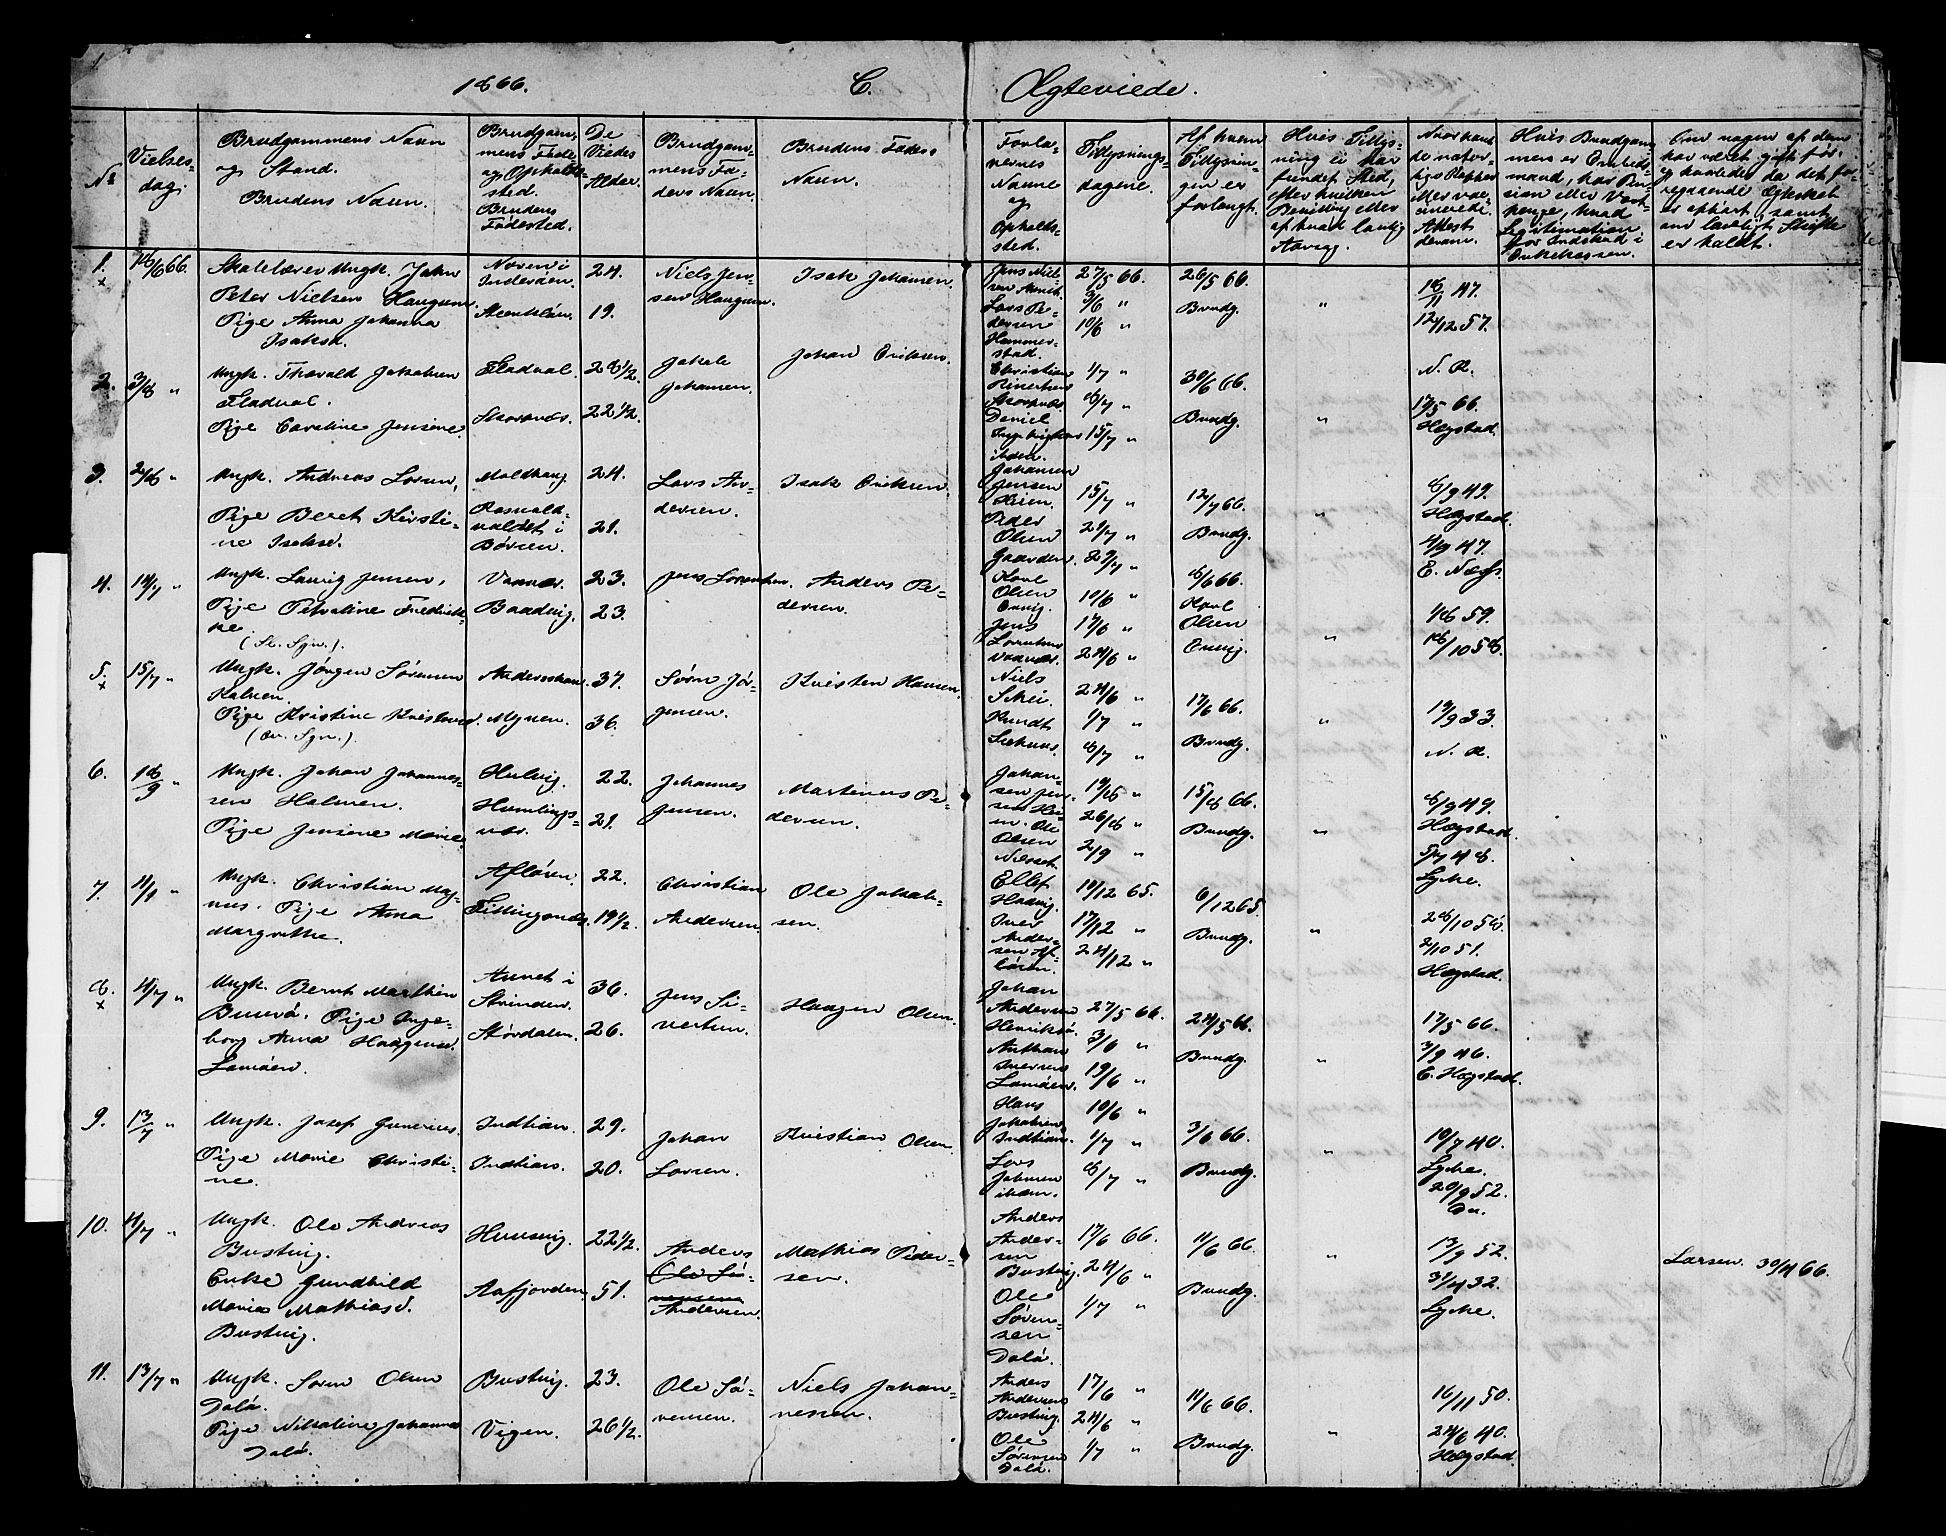 1
1866. C. Ægteviede.
No
Vielses-
dag.
Brudgommens Navn
og Stand.
Brudens Navn.
Brudgom-
mens Føde
og Opholds-
sted.
Brudens
Fødested.
De
Viedes
Alder.
Brudgom-
mens Fa-
ders Navn.
Brudens Faders
Navn.
Forlo-
vernes
Navne
og
Opholds-
sted.
Tillysnings-
dagene.
Af hvem
Tillysnin-
gen er
forlangt.
Hvis Tillys-
ning ei har
fundet Sted,
efter hvilken
Bevilling eller
af hvad lovlig
Aarsag.
Naar havt
de natur-
lige Kopper
eller vac-
cinerede.
Attest
derom.
Hvis Brudgom-
men er Embeds-
mand, har Pen-
sion eller Vart-
penge, hvad
Legitimation
for Indskud i
Enkekassen.
Om nogen af dem
har været gift før,
og hvorledes da det fo-
regaaende Ægteskab
er ophørt, samt
om lovligt Skifte
er holdt.
1.
x
18/6 66.
Skolelærer Ungk. Johan
Peter Nielsen Haugum.
Pige Anna Johanna
Isaksd.
Inderøen.
24.
19.
Niels Jen-
sen Haugum.
Isak Johansen.
Lars Pe-
dersen
Hammer-
stad.
27/5 66.
3/6 "
10/6 "
26/5 66.
Brudg.
"
18/11 47.
12/12 57.
2.
3/8 "
Ungk. Thorvald Jakobsen
Fladval.
Pige Caroline Jensine.
Fladval.
Skorpnæs.
28 1/2.
22 1/2.
Jakob
Johansen.
Johan Eriksen.
Christian
Daniel
1/7 "
8/7 "
15/7 "
30/6 66.
Brudg.
"
N. K.
17/5 66.
Hægstad.
3.
2/8 "
Ungk. Andreas Larsen,
Pige Beret Kirsti-
ne Isaksd.
Moldhaug.
Børsen.
24.
21.
Lars An-
dersen.
Isak Eriksen.
Johansen
Jensen
Peder
Olsen
Gaarden.
15/7 "
21/7 "
29/7 "
12/7 66.
Brudg.
"
8/9 49.
Hægstad.
4/9 47.
E. Næss.
4.
14/7 "
Ungk. Laurig Jensen,
Pige Petroline Fredrik-
ke
(St. Sgn.).
Vaavær.
Baadvig.
23.
23.
Jens Lorentsen.
Anders Pe-
dersen.
Karl
Olsen
Jens
Lorentsen
Vaavær.
10/6 "
17/6 "
24/6 "
8/6 66.
Karl
Olsen
"
1/8 59.
18/10 58.
5.
x
15/7 "
Ungk. Jørgen Sørensen
Kalven.
Pige Kristine Kristensd.
Mynen.
37.
36.
Søren Jør-
gensen.
Kristen Hansen.
Niels
Skei
Knudt
24/6 "
1/7 "
8/7 "
17/6 66.
Brudg.
"
17/9 33.
N. K.
"
6.
18/9 "
Ungk. Johan Johannes-
sen Holmen.
Pige Jensine Marie.
Hulvig.
Humlings-
vær.
22.
21.
Johannes
Jensen.
Martinus Pe-
dersen.
Johan-
sen Jen-
Ole
Olsen
19/8 "
26/8 "
2/9 "
15/8 66.
Brudg.
"
8/9 49.
Hægstad.
5/7 48.
Lyche.
7.
11/1 "
Ungk. Christian Mag-
nus. Pige Anna
Margrethe.
Afløren.
Tillingsnæs.
22.
19 1/2.
Christian
Andersen.
Ole Jakob-
sen.
Ellef
Iver
Ander-
sen Af-
løren.
10/12 65.
17/12 "
24/12 "
6/12 65.
Brudg.
"
28/10 56.
2/10 51.
Hægstad.
8.
x
4/7 "
Ungk. Bernt Marthin
Pige Inge-
borg Anna Haagensd.
Lamøen.
Strinden.
Størdalen.
36.
26.
Jens Si-
vertsen.
Haagen Olsen.
Johan
Andersen
Henriksø.
Lamøen.
27/5 66.
3/6 "
19/6 "
24/5 66.
Brudg.
"
17/5 66.
3/9 46.
E. Hægstad.
9.
13/7 "
Ungk. Josef Grenerius.
Pige Marie Christi-
ne.
Indtian.
Indtian.
29.
20.
Johan
Larsen.
Kristian Olsen.
Hans
Jakobsen
Indtian.
Lars
Johnsen
ibidem.
10/6 "
1/7 "
8/7 "
3/6 66.
Brudg.
"
10/7 40.
Lyche.
20/9 52.
Do.
10.
11/7 "
Ungk. Ole Andreas
Bustvig.
Enke Gundhild
Maria Mathiasd.
Bustvig.
Hunsvig.
Aafjorden.
22 1/2.
51.
Anders
Ole Sø-
rensens
Andersen.
Mathias Peder-
sen.
Anders
Ander-
sen
Bustvig.
Ole
Søren-
sen
Dolø.
17/6 66.
24/6 "
1/7 "
11/6 66.
Brudg.
"
13/9 52.
31/4 32.
Lyche.
Larsen. 30/4 66.
11.
13/7 "
Ungk. Søren Olsen
Dolø.
Pige Nikoline Johanna
Dolø.
Bustvig.
Vigen.
23.
26 1/2.
Ole Sø-
rensen.
Niels Johan-
nessen.
Anders
Andersen
Bustvig.
Ole
Sørensen
Dolø.
17/6 "
24/6 "
1/7 "
11/6 66.
Brudg.
"
16/11 50.
24/6 40.
Hægstad.